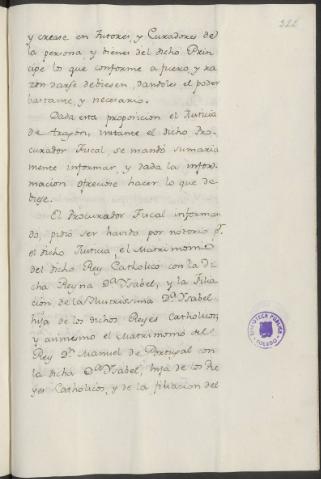 322
y crease en Tutores, y Curadores de
la persona y bienes del dicho Prin
cipe lo que conforme a fuero, y ra
zon darse debiesen, dandoles el poder
bastante, y necesario.
Dada esta proposicion el Justicia
de Aragon, instante el dicho Pro-
curador Fiscal, se mandó sumaria
mente informar, y dada la infor-
macion ofreciose hacer lo que de
biese.
El Procurador Fiscal informan
do, pidió ser havido por notorio pr.
el dicho Justicia, el Matrimonio
del dicho Rey Catholico con la di
cha Reyna Da. Ysabel, y la Filia
cion de la Illustrissima Da. Ysabel
hija de los dichos Reyes Catholicos,
y assimismo el Matrimonio del
Rey Dn. Manuel de Portugal con
la dicha Da. Ysabel, hija de los Re
yes Catholicos, y de la filiacion del
BIBLIOTECA PUBLICA
TOLEDO